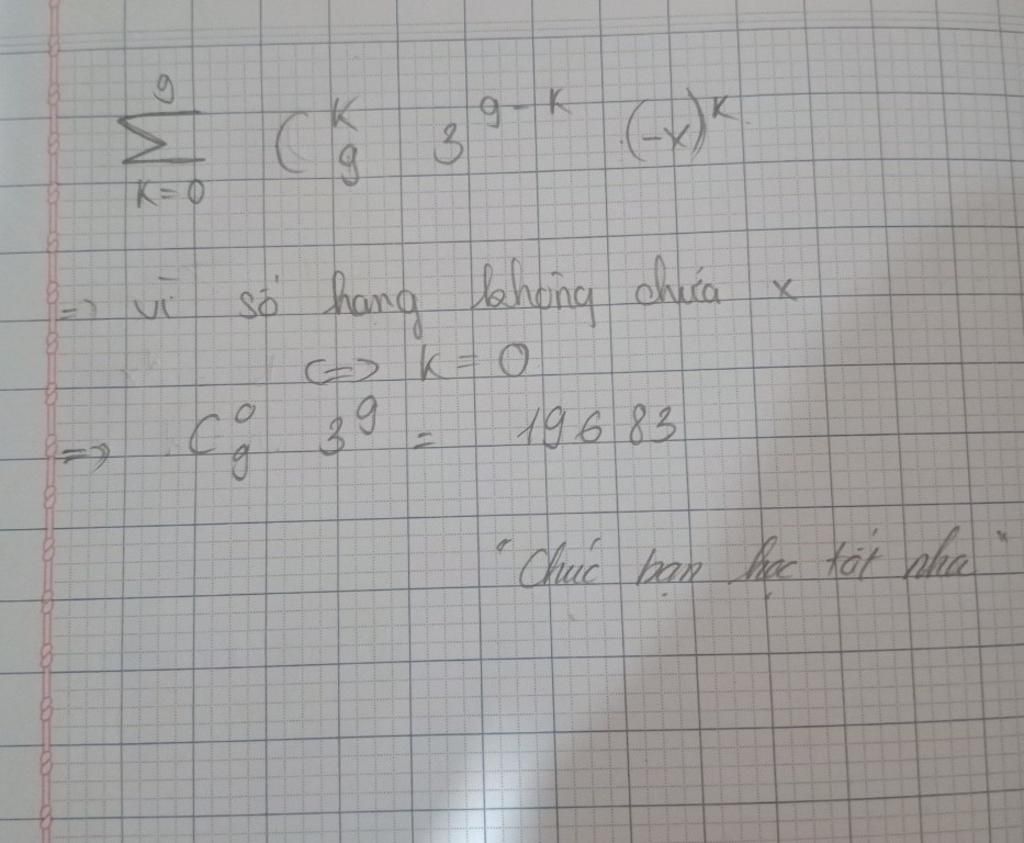 9
∑ C^K_9 3^{9-K} (-x)^K
K=0
=> vì số hang không chứa x
<=> k = 0
=> C^0_9 3^9 = 19683
"Chúc bạn học tốt nha"